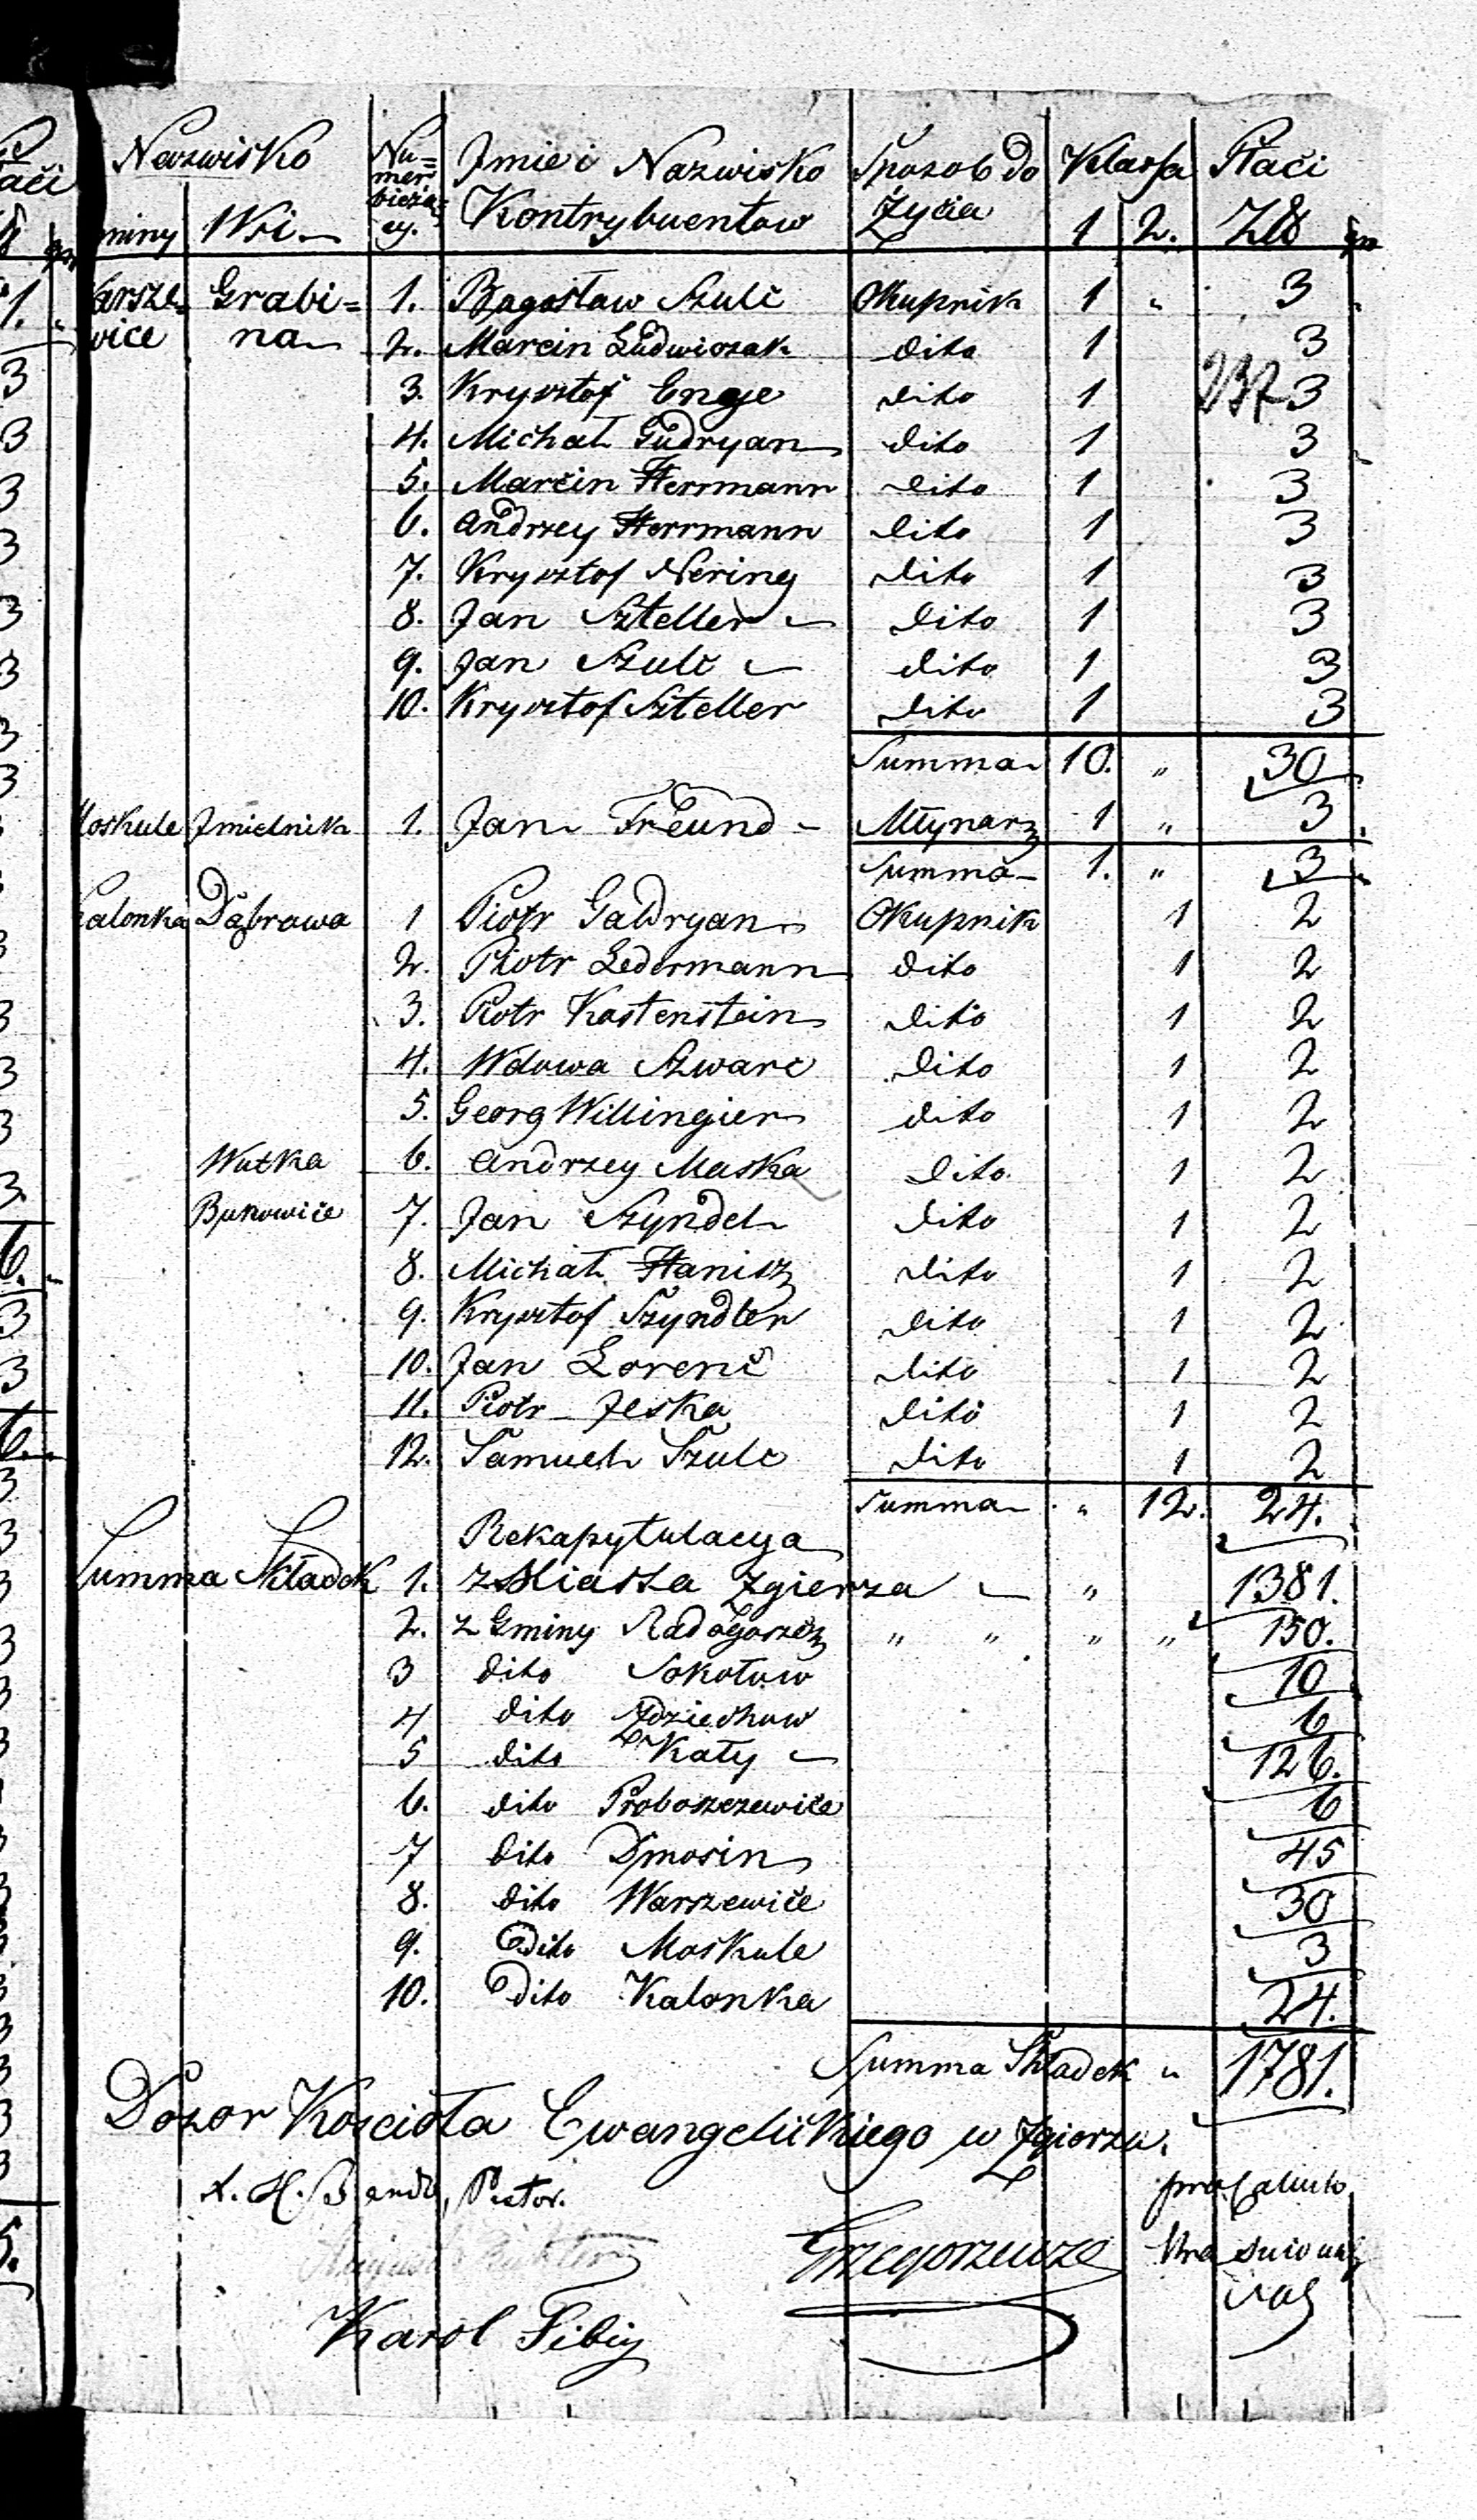 Nazwisko Nu= Jmie i Nazwisko Sposob do Klassa Płaci
mer
bieżą=
Gminy Wsi cy. Kontrybuentow Życia 1 2. Zł gr
Warsze= Grabi= 1. Bogosław Szulc Okupnik 1 " 3
wice na 2. Marcin Ludwiczak dito 1 3
3. Krysztof Enge dito 1 237 3
4. Michał Gudryan dito 1 3
5. Marcin Herrmann dito 1 3
6. Andrzey Herrmann dito 1 3
7. Krysztof Nering dito 1 3
8. Jan Szteller dito 1 3
9. Jan Szulc dito 1 3
10. Krysztof Szteller dito 1 3
Summa 10. " 30
Moskule Jmielnik 1. Jan Freund - Młynarz 1 " 3
Summa 1. " 3
Kalonka Dąbrowa 1 Piotr Galdryan Okupnik 1 2
2. Piotr Ledermann dito 1 2
3. Piotr Kastenstein dito 1 2
4. Wdowa Szwarc dito 1 2
5. Georg Willingier dito 1 2
Wutka 6. Andrzey Maska dito 1 2
Bukowice 7. Jan Szyndel dito 1 2
8. Michał Hanisz dito 1 2
9. Krysztof Szyndler dito 1 2
10. Jan Lorenc dito 1 2
11. Piotr Jeska dito 1 2
12. Samuel Szulc dito 1 2
Summa " 12. 24.
Rekapytulacya
Summa Składek 1. z Miasta Zgierza " 1381.
2. z Gminy Radogoszcz " " " " 150.
3 dito Sokołow 10
4 dito Zdziechow 6
5 dito Kały 126.
6. dito Proboszczewice 6
7 dito Dmosin 45
8. dito Warszewice 30
9. Dito Moskule 3
10. Dito Kalonka 24.
Summa Składek " 1781.
Dozor Kościoła Ewangelickiego w Zgierzu.
Pastor.
Karol Fibig